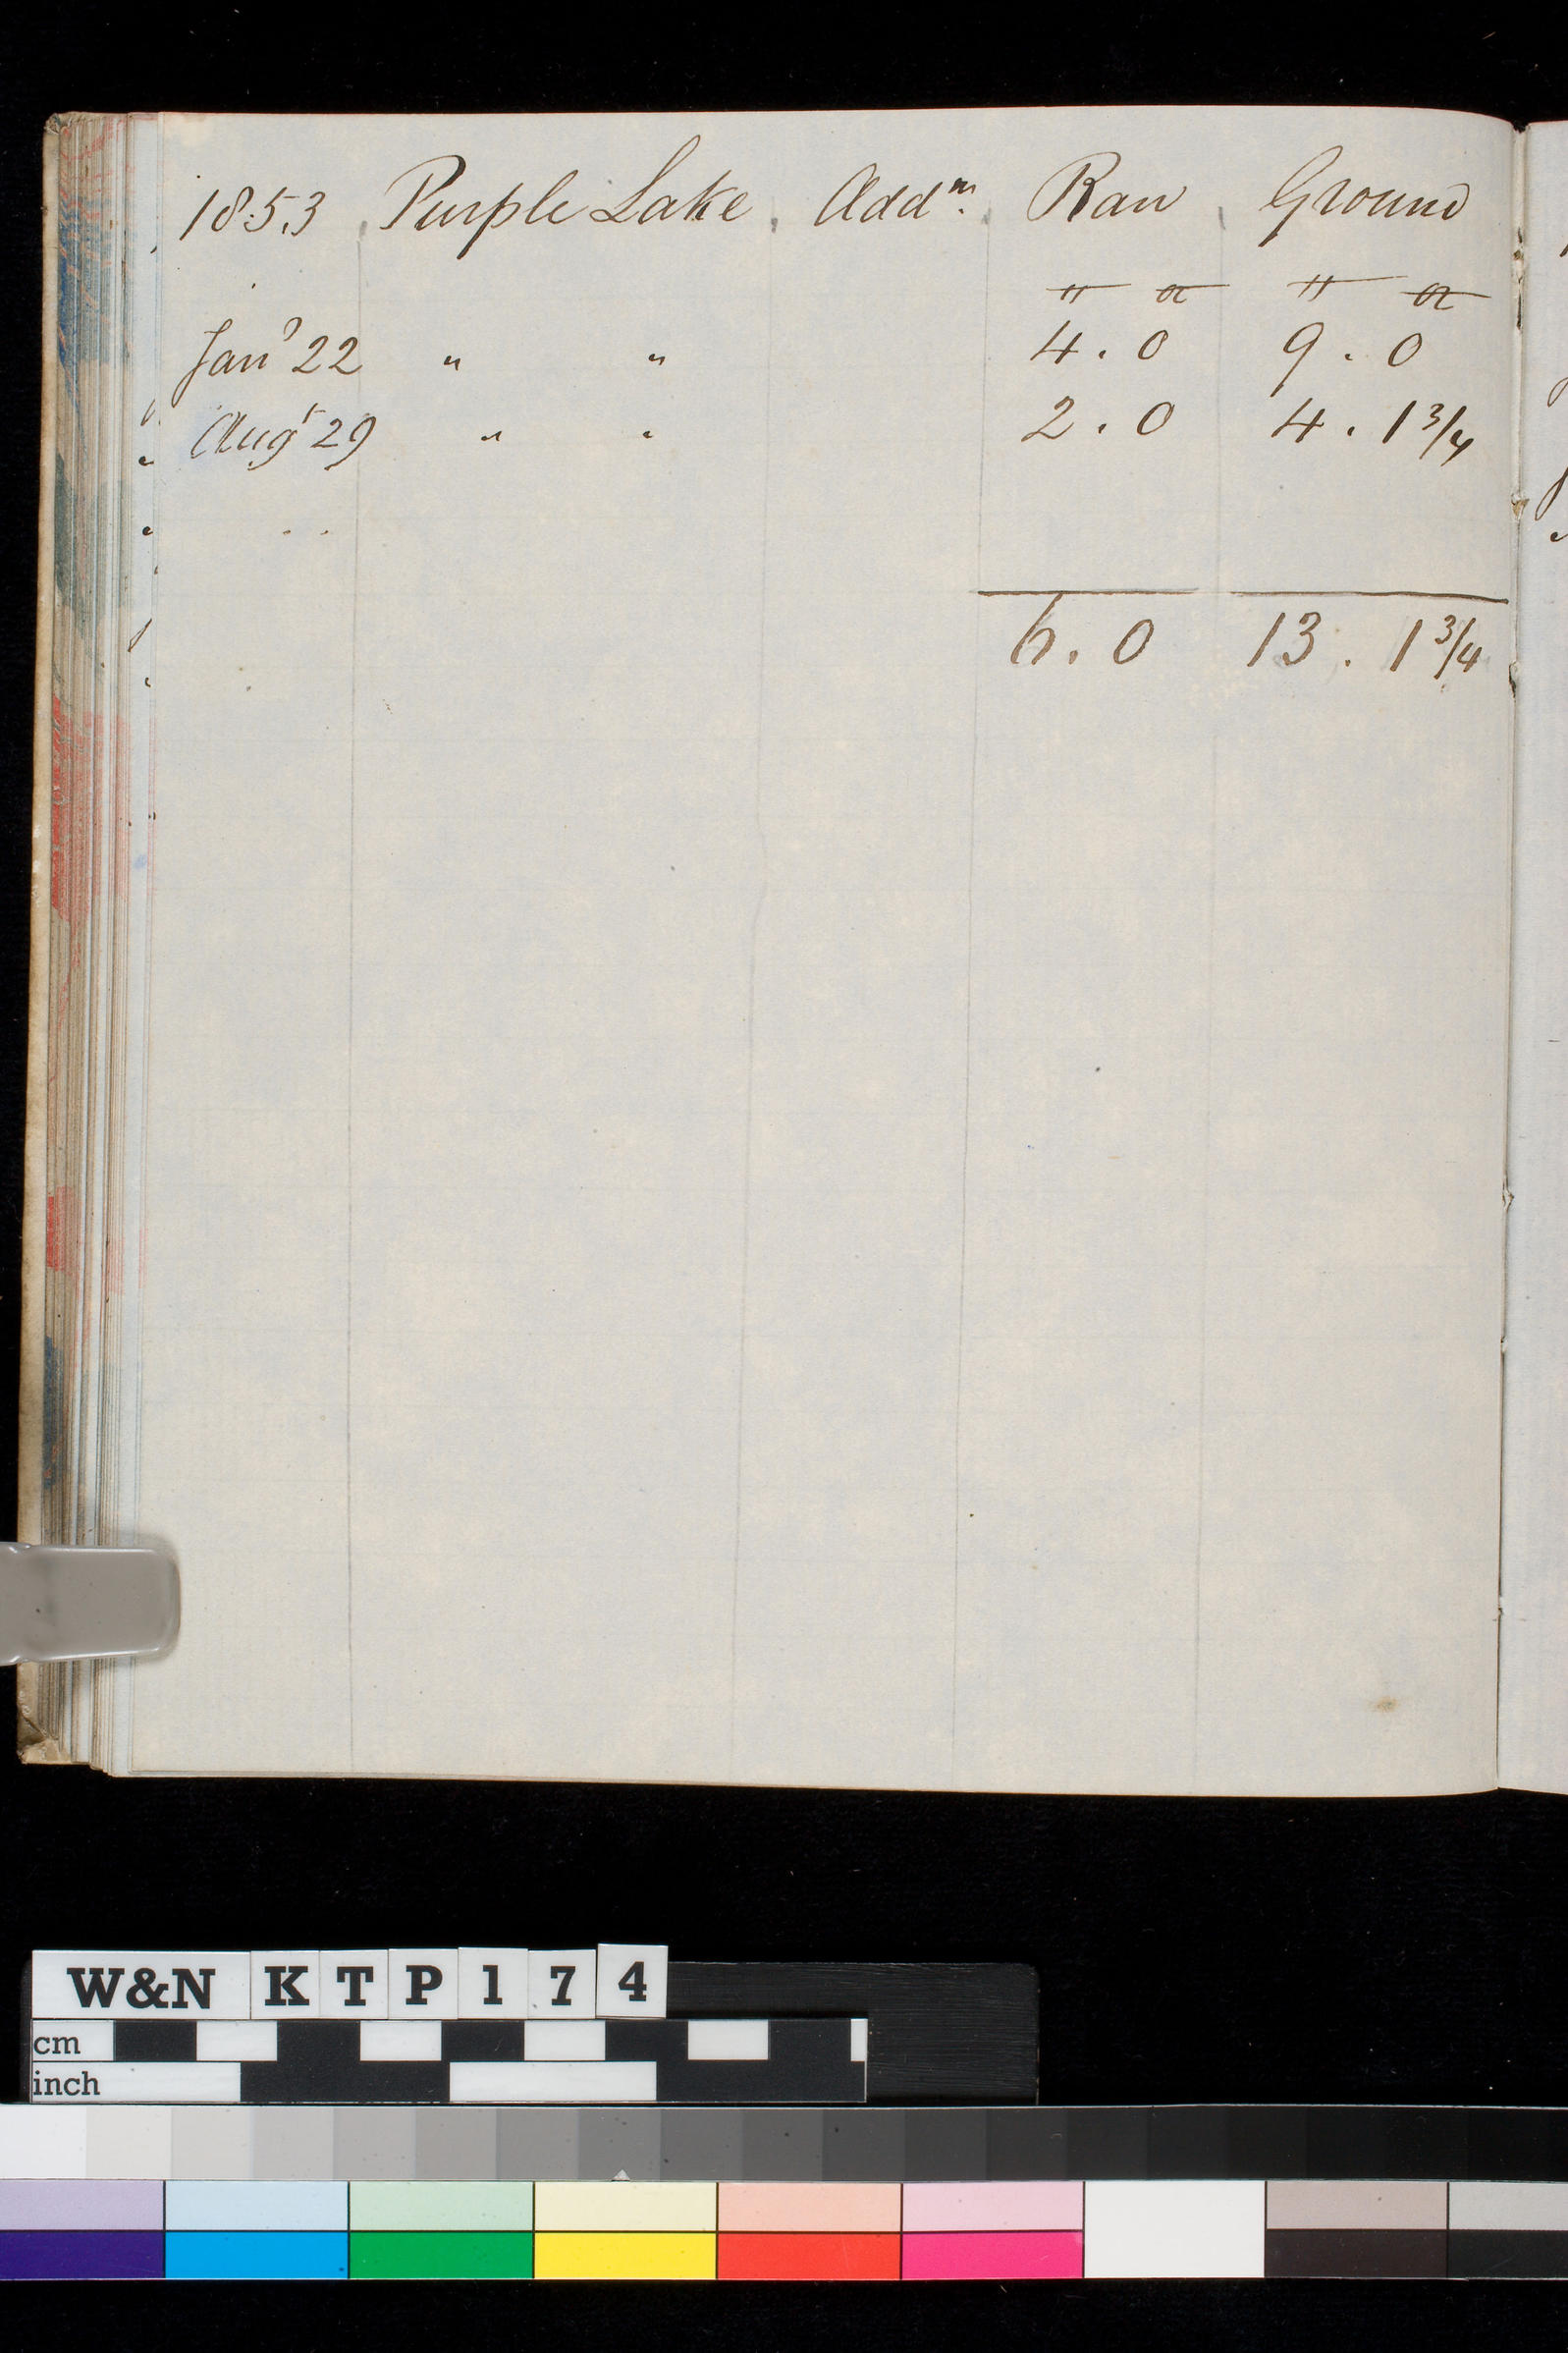 1853 Purple Lake Addn. Raw Ground
" oz " oz
Jany 22 " " 4 . 0 9 . 0
Augt 29 " " 2 . 0 4 . 1 3/4
6 . 0 13 . 1 3/4
W&N KTP174
cm
inch